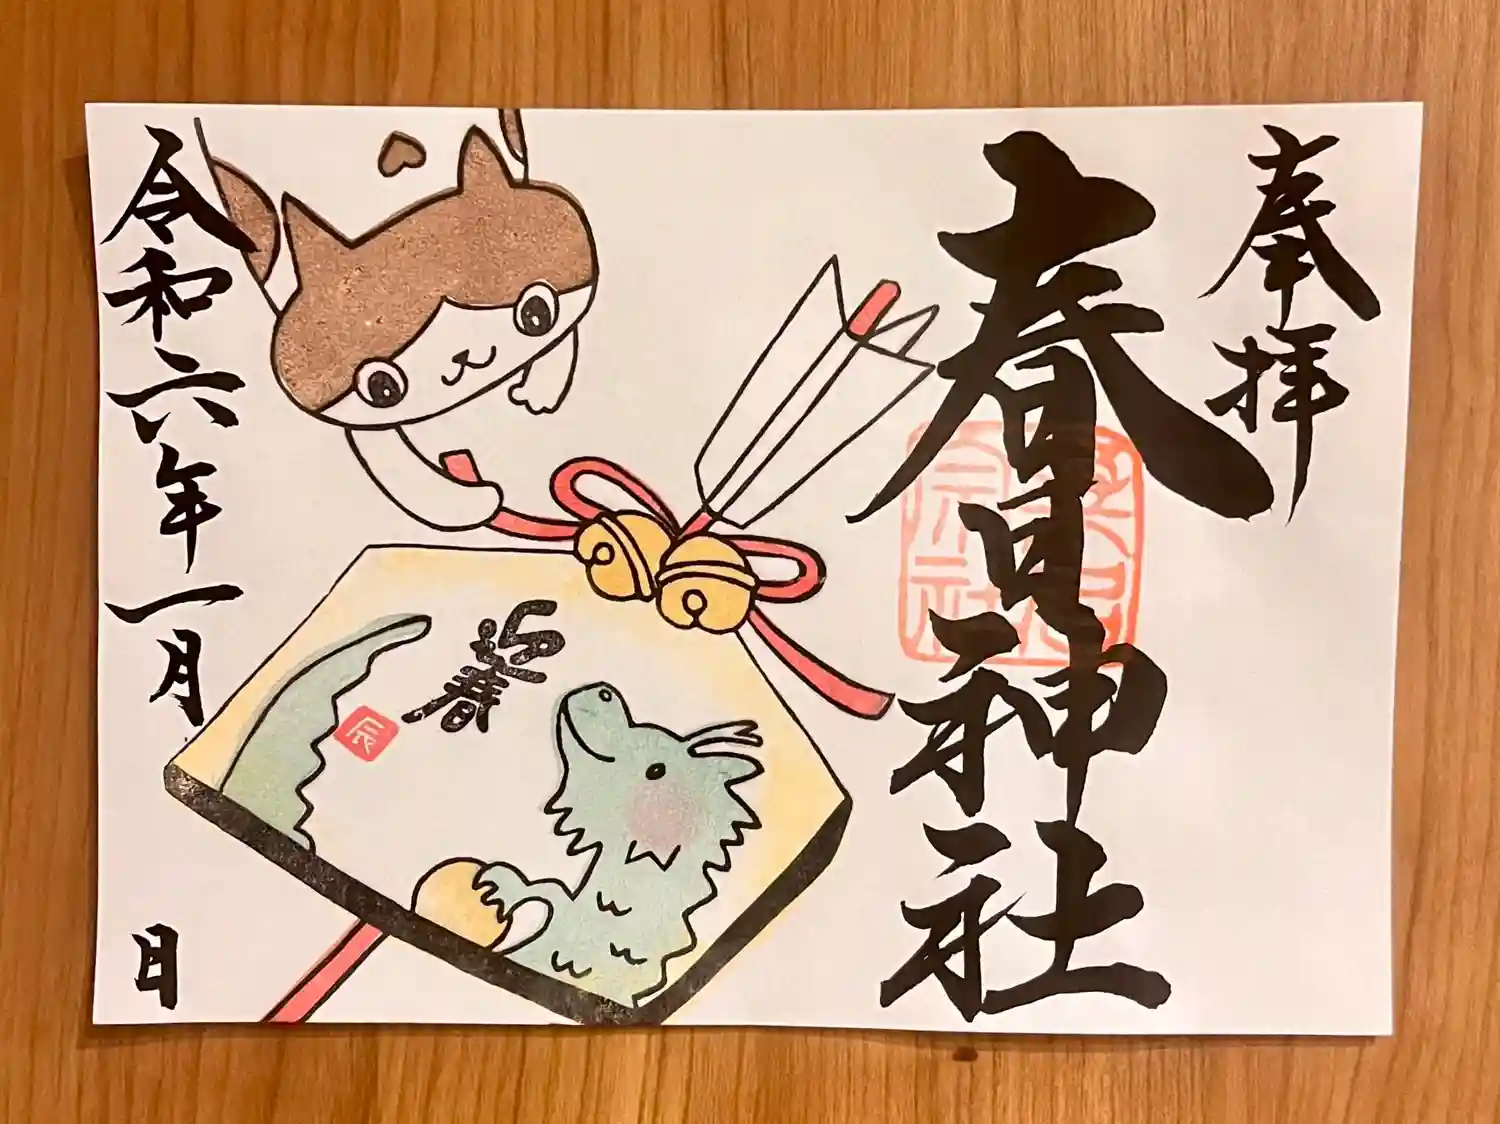 奉拝
春日神社
迎春
辰
令和六年一月 日